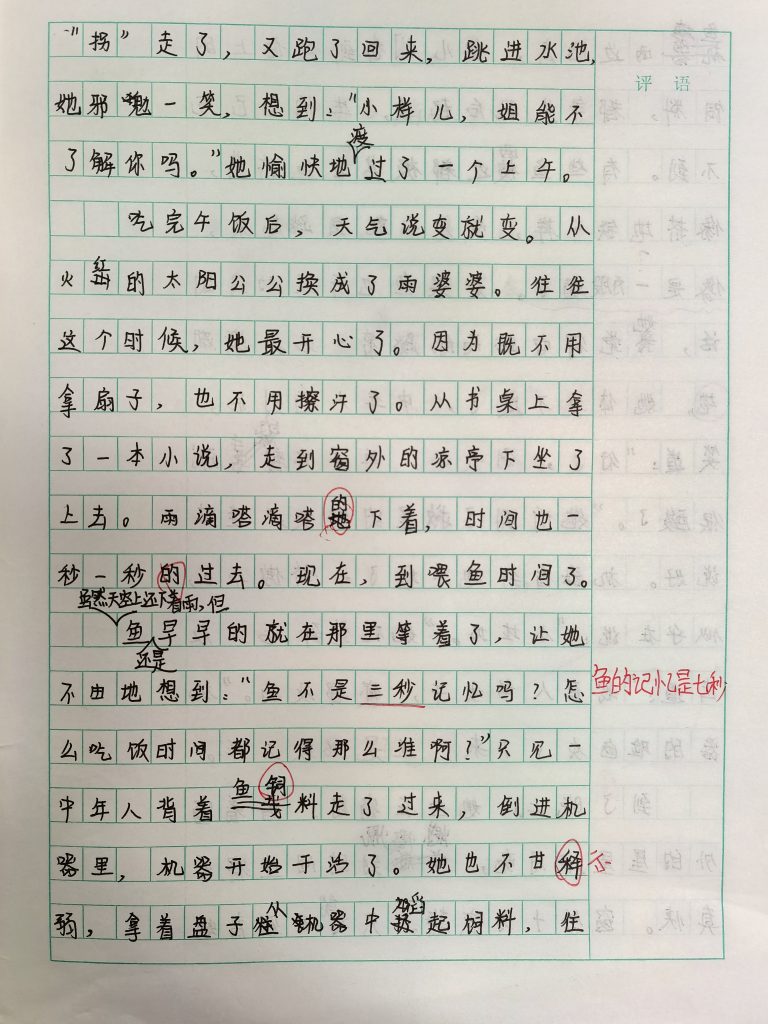 "拐"走了，又跑了回来，跳进水池，
评语
她邪魅一笑，想到："小样儿，姐能不
度
了解你吗。"她愉快地过了一个上午。
吃完午饭后，天气说变就变。从
火红的太阳公公换成了雨婆婆。往往
这个时候，她最开心了。因为既不用
拿扇子，也不用擦汗了。从书桌上拿
了一本小说，走到窗外的凉亭下坐了
上去。雨滴嗒滴嗒的下着，时间也一
秒一秒的过去。现在，到喂鱼时间了。
虽然天空上还下着雨，但
鱼早早的就在那里等着了，让她
还是
不由地想到："鱼不是三秒记忆吗？怎
鱼的记忆是七秒
么吃饭时间都记得那么准啊？"只见一
中年人背着鱼料走了过来，倒进机
器里，机器开始干活了。她也不甘
示
弱，拿着盘子从机器中起饲料，往